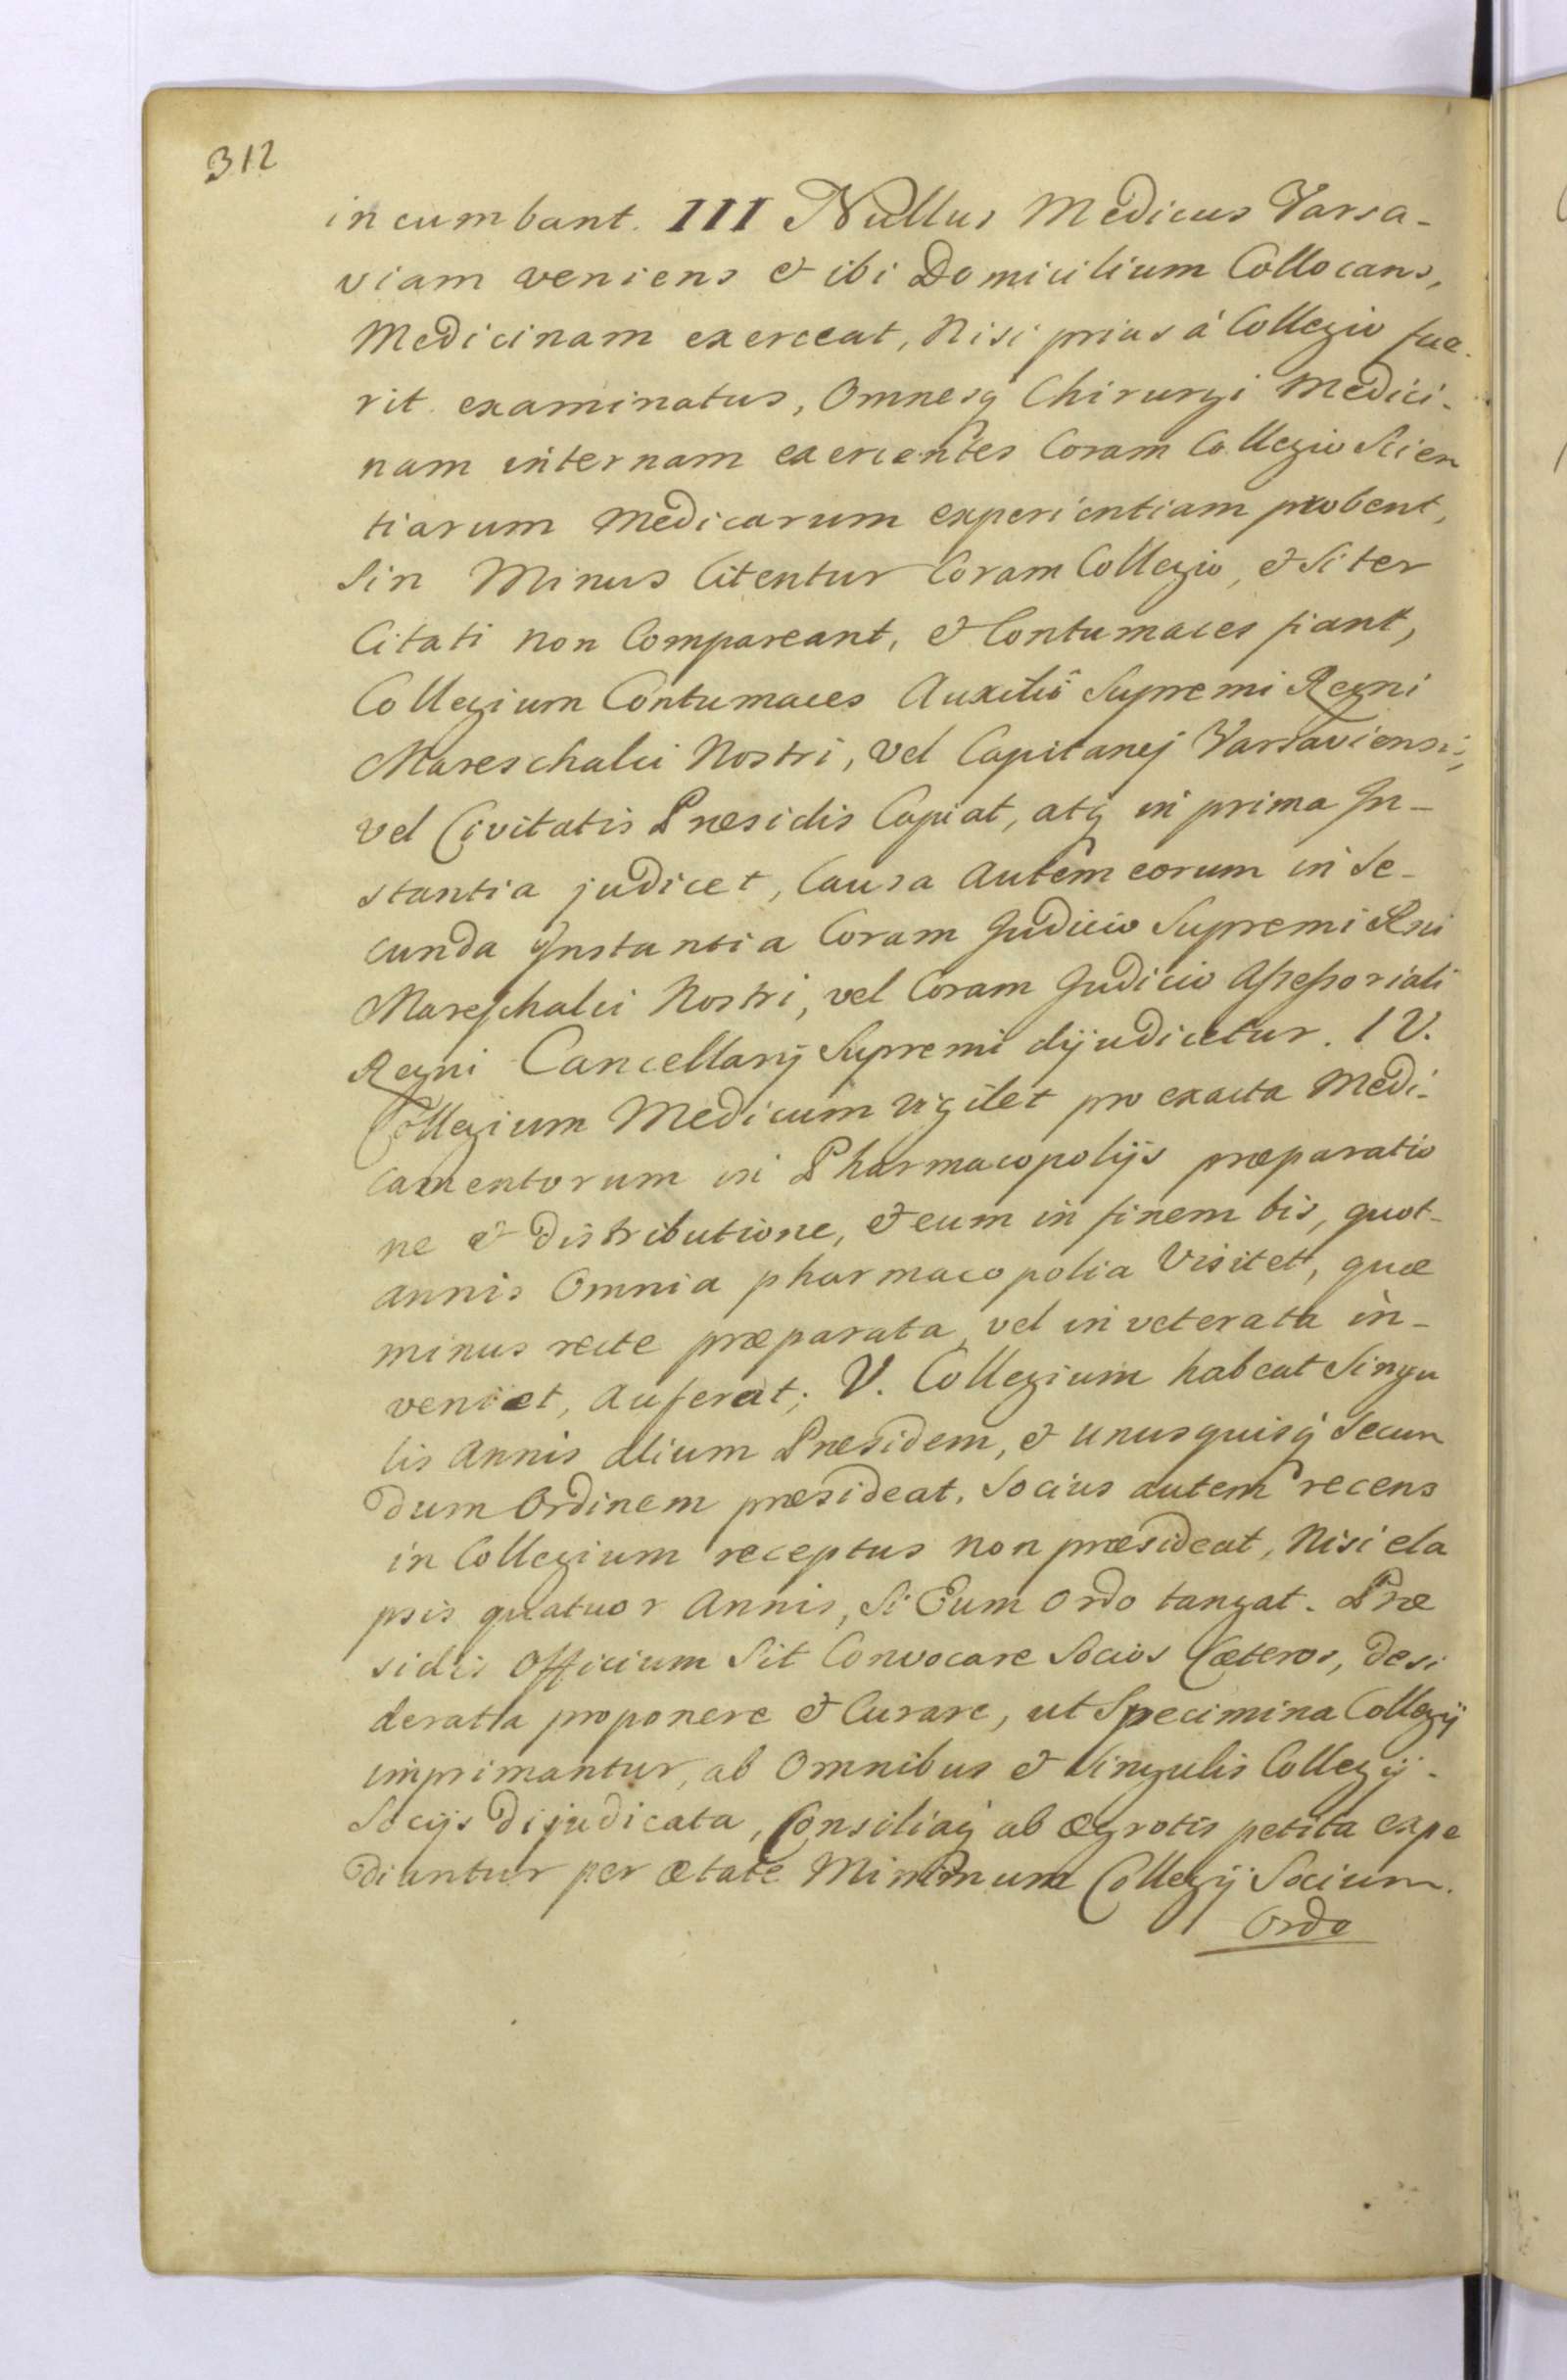 312
incumbant. III Nullus Medicus Varsa-
viam veniens & ibi Domicilium Collocans,
Medicinam exerceat, Nisi prius á Collegio fue-
rit examinatus, Omnesq Chirurgi Medici-
nam internam exercentes Coram Collegio Scien
tiarum Medicarum experientiam probent,
Sin Minus Citentur Coram Collegio, & Si ter
Citati non Compareant, & Contumaces fiant,
Collegium Contumaces Auxiliô Supremi Regni
Mareschalci Nostri, vel Capitanej Varsaviensis,
vel Civitatis Præsidis Capiat, atq in prima In-
stantia judicet, Causa Autem eorum in Se-
cunda Instantia Coram Judicio Supremi Rni
Mareschalci Nostri, vel Coram Judicio Assessoriali
Regni Cancellarij Supremi dijudicetur. IV.
Collegium Medicum vigilet pro exacta Medi-
camentorum in Pharmacopolijs præparatio
ne & distributione, & eum in finem bis, quot-
annis Omnia pharmacopolia Visitet, quæ
minus recte præparata, vel inveterata in-
veniet, Auferat; V. Collegium habeat Singu
lis Annis Alium Præsidem, & unusquisq Secun
dum Ordinem præsideat. Socius autem recens
in Collegium receptus non præsideat, Nisi ela
psis quatuor Annis, Si Eum Ordo tangat. Præ
sidis Officium Sit Convocare Socios Cæteros, desi
derata proponere & Curare, ut Specimina Collegij
imprimantur, ab Omnibus & Singulis Collegij-
Socijs dijudicata, Consiliaq ab ægrotis petita expe
diantur per ætate Minimum Collegij Socium.
Ordo